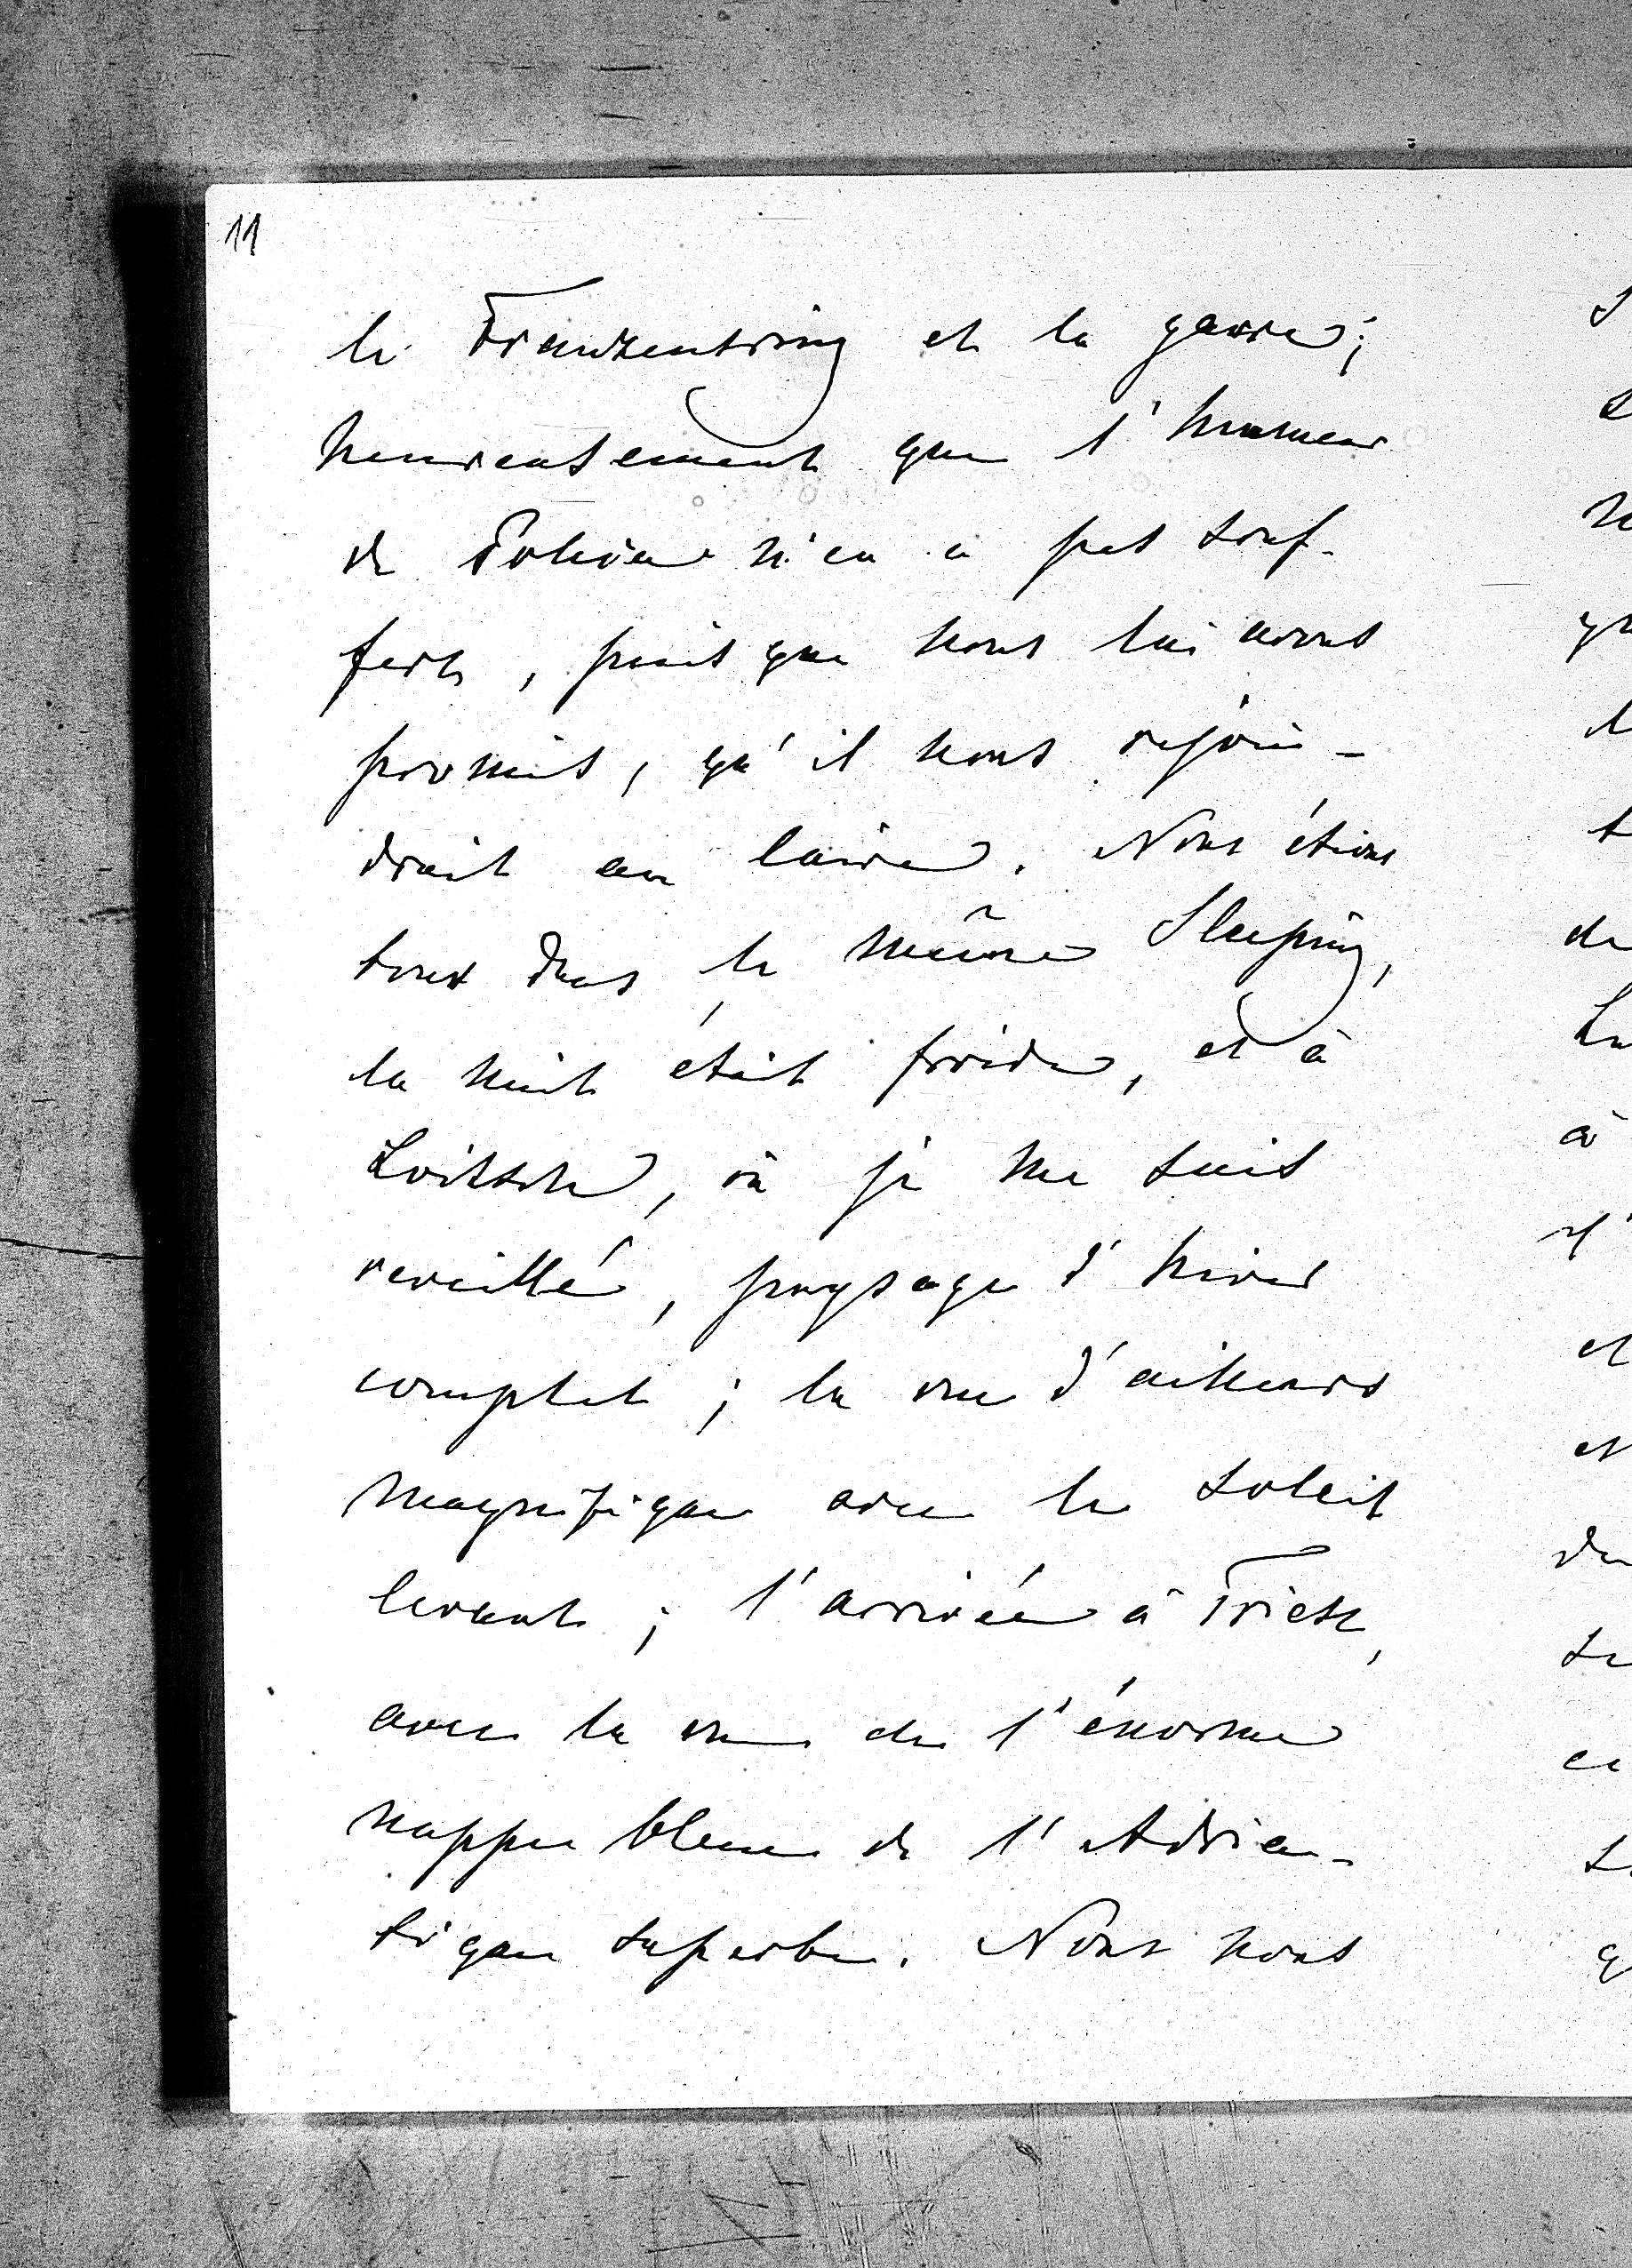 11
le Franzensring et la garre;
heureusement que l'humeur
de n'en a pas souf-
fert, puisque nous lui avons
promis, qu'il nous rejoin-
drait au Caire. Nous étions
tous dans le même Sleeping,
la nuit était froide, et à
Loitsch, où je me suis
reveillé, paysage d'hiver
complet; la vue d'ailleurs
magnifique avec le soleil
levant; l'arrivée à Trieste,
avec la vue de l'énorme
nappe bleue de l'Adria-
tique superbe. Nous nous